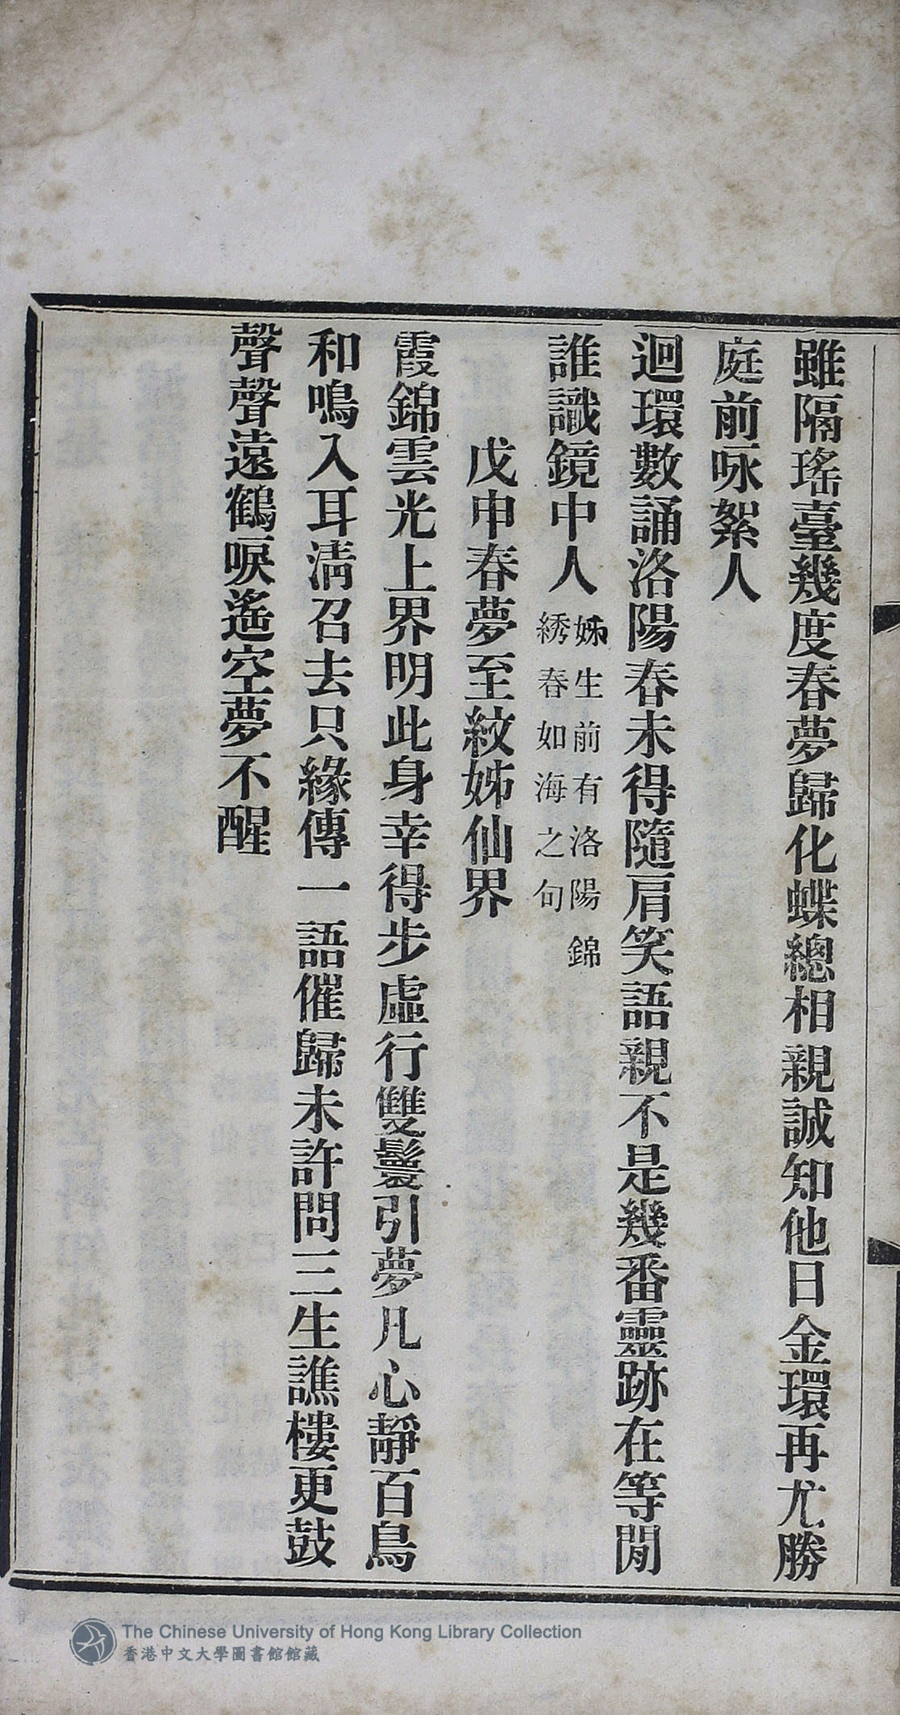 雖隔瑤臺幾度春夢歸化蝶總相親誠知他日金環再尤勝
庭前咏絮人
迴環數誦洛陽春未得隨肩笑語親不是幾番靈跡在等閒
誰識鏡中人姊生前有洛陽錦
綉春如海之句
戊申春夢至紋姊仙界
霞錦雲光上界明此身幸得步虛行雙鬟引夢凡心靜百鳥
和鳴入耳淸召去只緣傳一語催歸未許問三生譙樓更鼓
聲聲遠鶴唳遙空夢不醒
The Chinese University of Hong Kong Library Collection
香港中文大學圖書館館藏